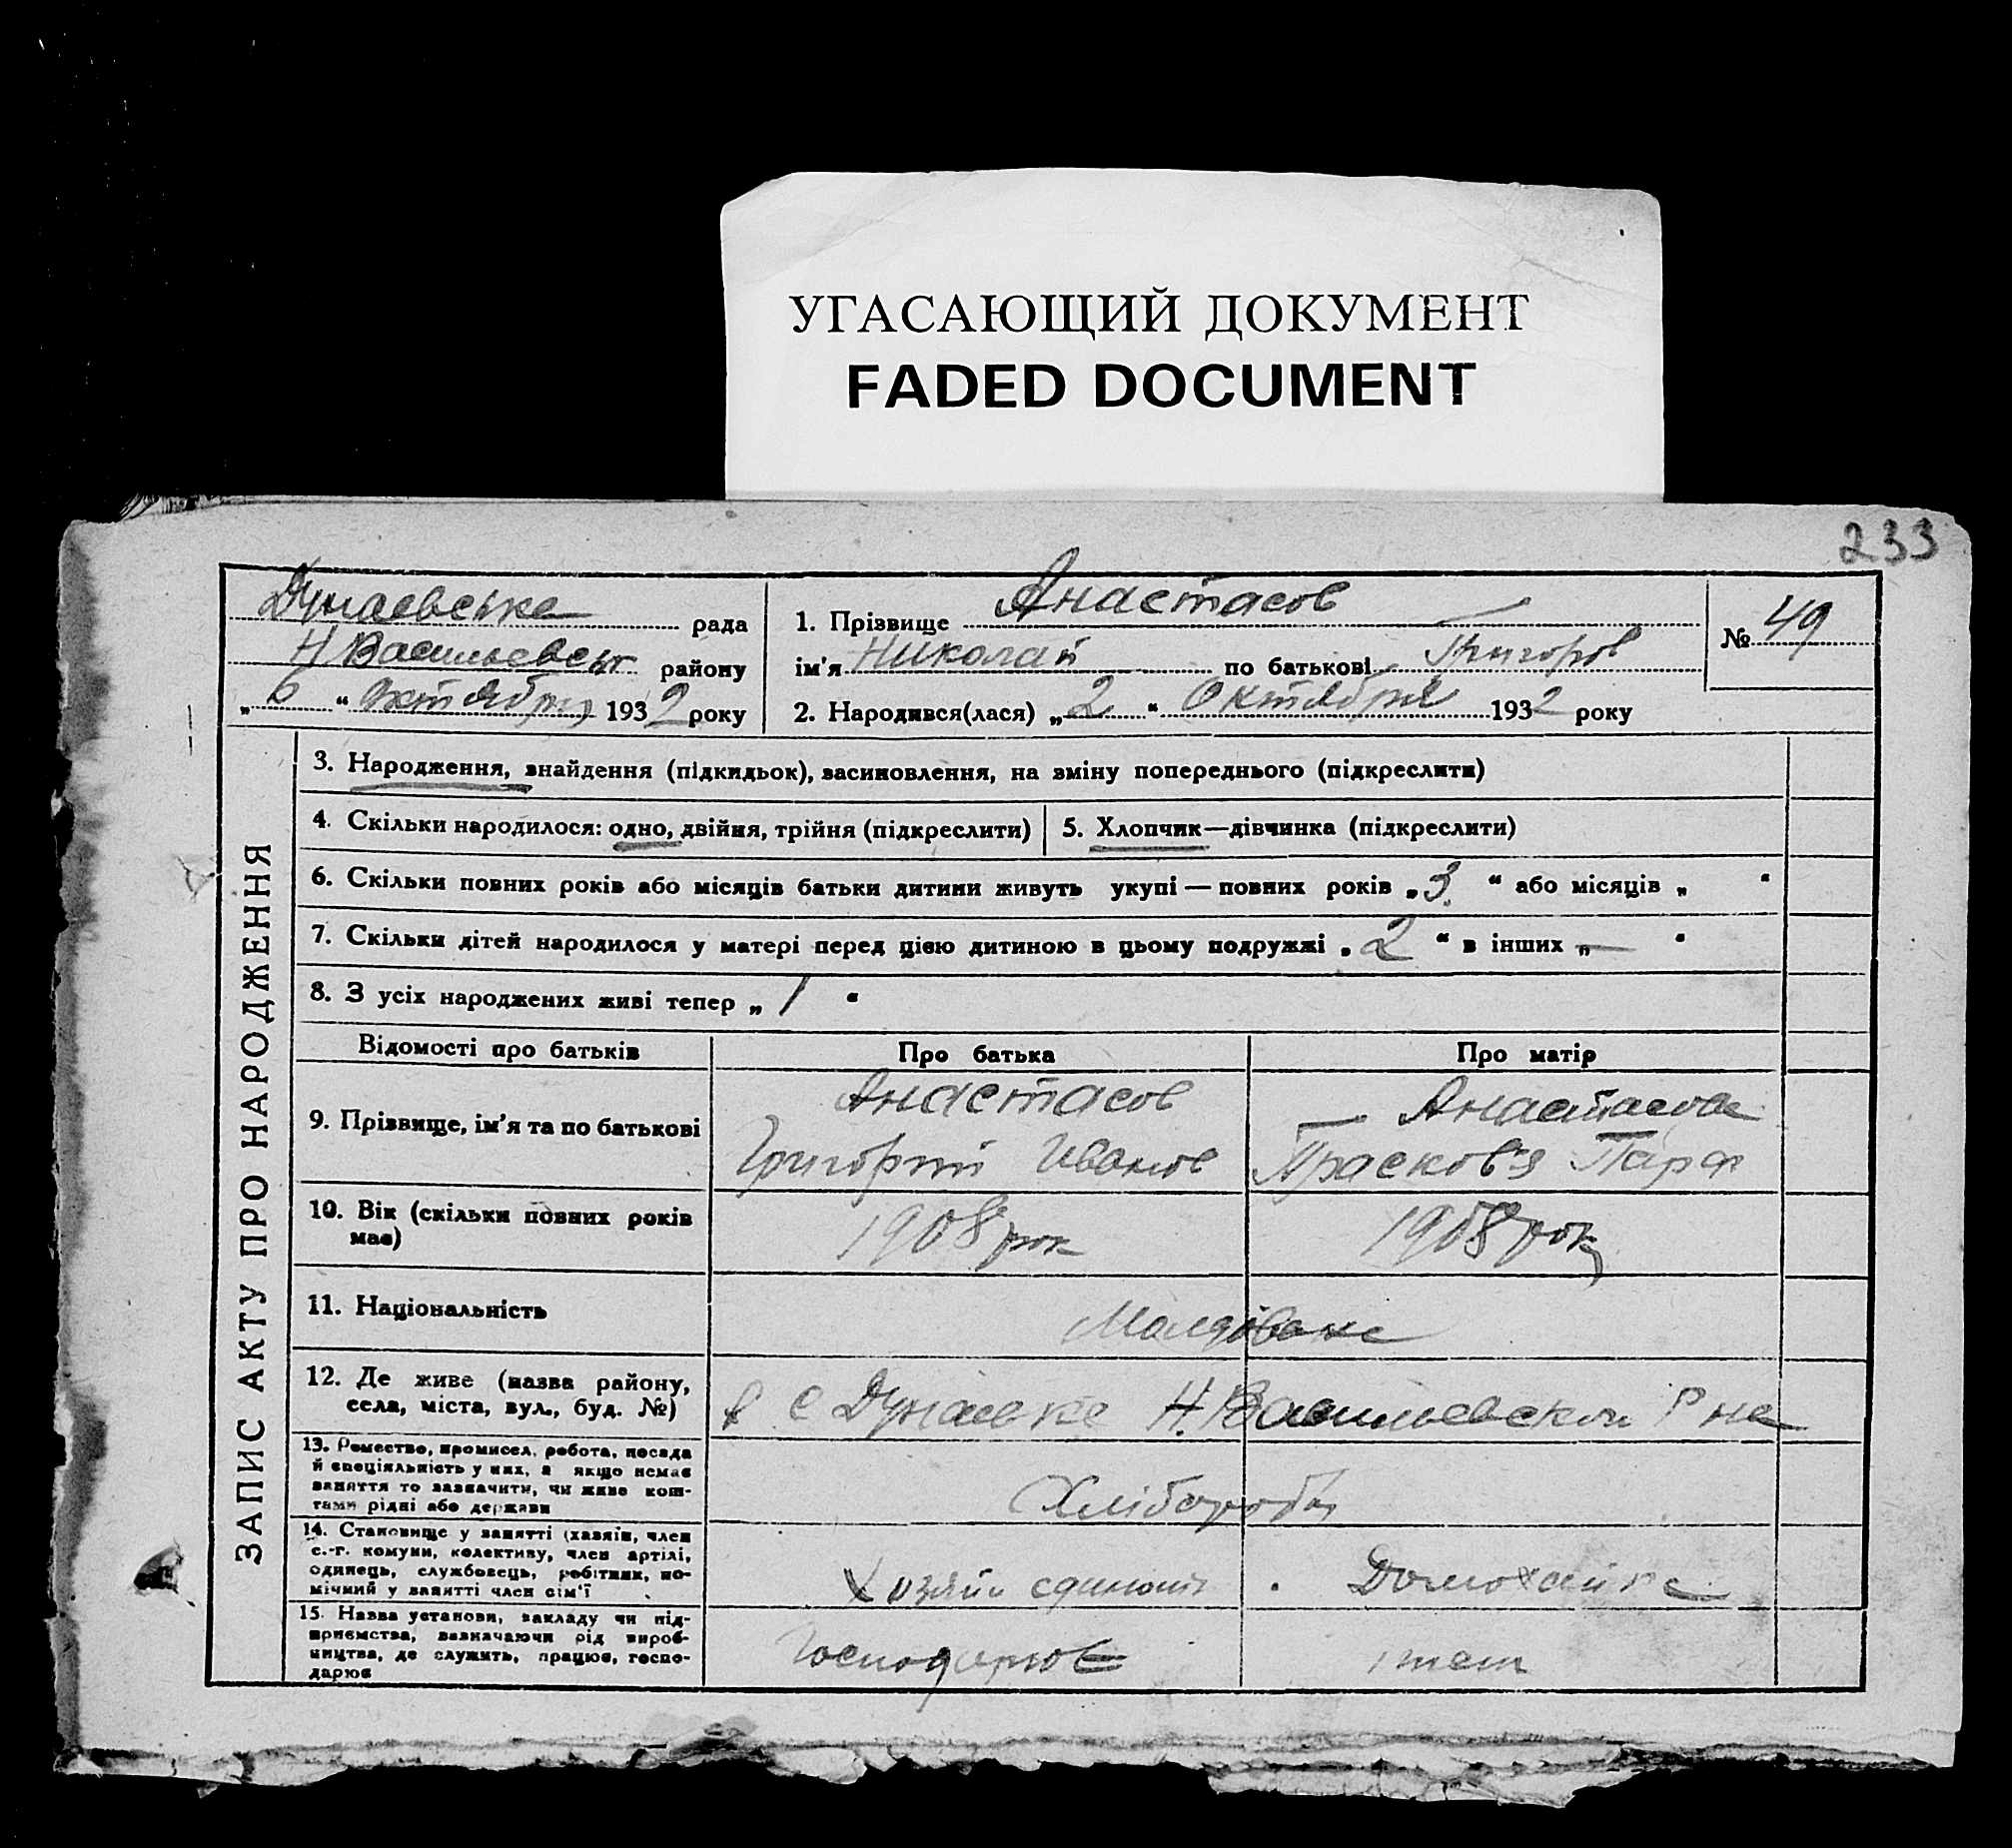 УГАСАЮЩИЙ ДОКУМЕНТ
FADED DOCUMENT
233
Дунаевське рада
Н Васильевськ району
„ 6 “ Октября 1932 року
1. Прізвище Анастасов
ім'я Николай по батькові Григоров
2. Народився(лася) „ 2 “ Октября 1932 року
№ 49
ЗАПИС АКТУ ПРО НАРОДЖЕННЯ
3. Народження, знайдення (підкидьок), засиновлення, на зміну попереднього (підкреслити)
4. Скільки народилося: одно, двійня, трійня (підкреслити)
5. Хлопчик—дівчинка (підкреслити)
6. Скільки повних років або місяців батьки дитини живуть укупі — повних років „ 3 “ або місяців „ “
7. Скільки дітей народилося у матері перед цією дитиною в цьому подружжі „ 2 “ в інших „ — “
8. З усіх народжених живі тепер „ 1 “
Відомості про батьків
Про батька
Про матір
9. Прізвище, ім'я та по батькові
Анастасов
Григорий Иванов
Анастасова
Прасков'я Парф
10. Вік (скільки повних років
має)
1908 рок
1908 рок
11. Національність
Молдоване
12. Де живе (назва району,
села, міста, вул., буд. №)
в с Дунаевке Н.Васильевском Р не
13. Ремество, промисел, робота, посада
й спеціяльність у них, а якщо немає
заняття то зазначити, чи живе кош-
тами рідні або держави
Хлібороби
14. Становище у занятті (хазяїн, член
с.-г. комуни, колективу, член артілі,
одинець, службовець, робітник, по-
мічний у занятті член сім'ї
Хозяйн
Домохайке
15. Назва установи, закладу чи під-
приємства, зазначаючи рід вироб-
ництва, де служить, працює, госпо-
дарює
Господарює